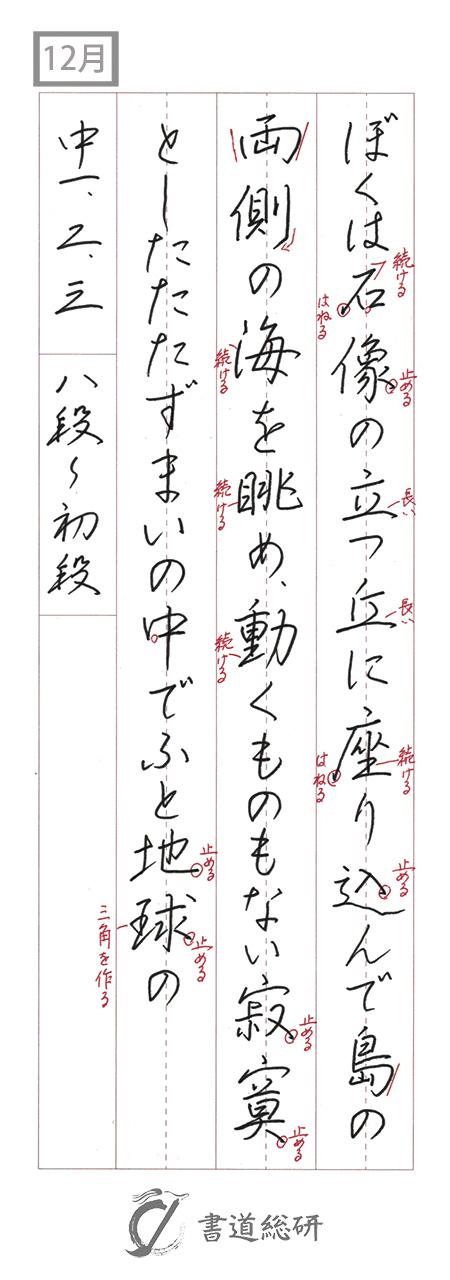 12月
ぼくは石像の立つ丘に座り込んで島の
続ける
はねる
止める
長い
長い
続ける
はねる
止める
両側の海を眺め、動くものもない寂寞
続ける
続ける
続ける
止める
止める
としたたたずまいの中でふと地球の
止める
止める
三角を作る
中一、二、三
八段〜初段
書道総研